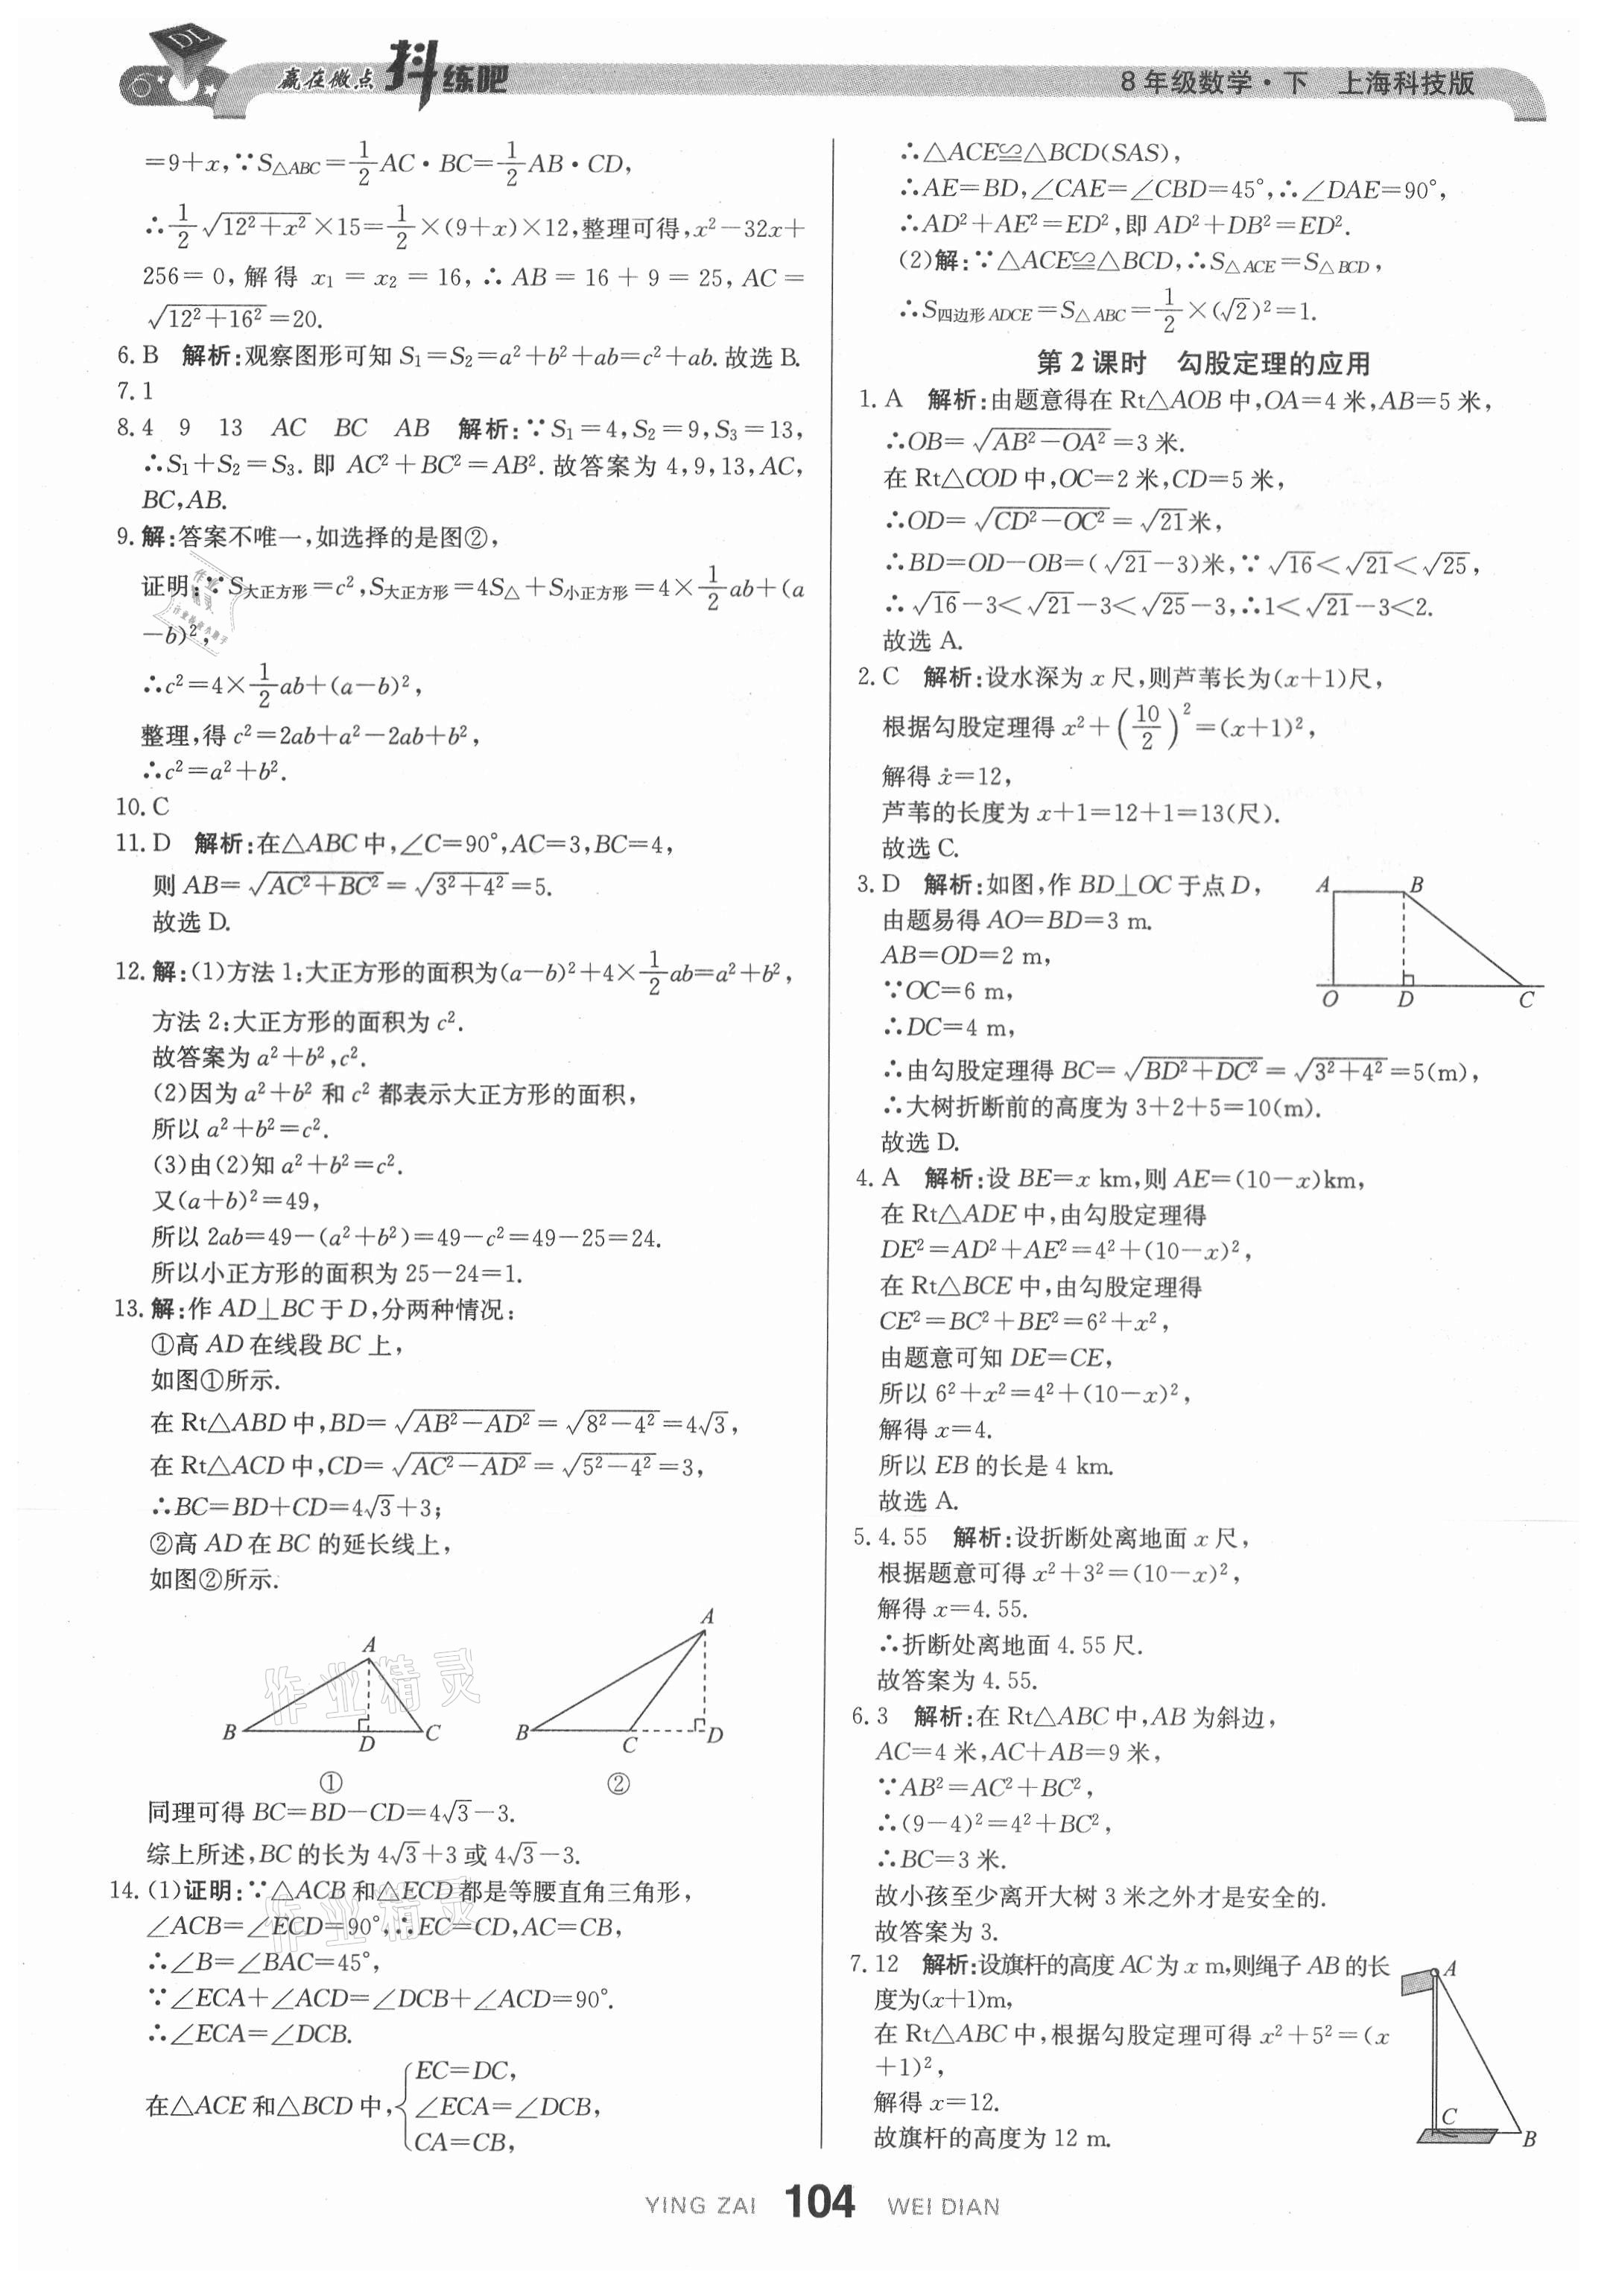 DL
赢在微点 抖练吧
8年级数学·下 上海科技版
=9+x,∵S△ABC=1/2 AC·BC=1/2 AB·CD,
∴1/2 √(12²+x²)×15=1/2×(9+x)×12,整理可得,x²-32x+
256=0,解得 x₁=x₂=16,∴AB=16+9=25,AC=
√(12²+16²)=20.
6.B 解析:观察图形可知 S₁=S₂=a²+b²+ab=c²+ab.故选B.
7.1
8.4 9 13 AC BC AB 解析:∵S₁=4,S₂=9,S₃=13,
∴S₁+S₂=S₃.即 AC²+BC²=AB².故答案为 4,9,13,AC,
BC,AB.
9.解:答案不唯一,如选择的是图②,
证明:∵S大正方形=c²,S大正方形=4S△+S小正方形=4×1/2 ab+(a
-b)²,
∴c²=4×1/2 ab+(a-b)²,
整理,得 c²=2ab+a²-2ab+b²,
∴c²=a²+b².
10.C
11.D 解析:在△ABC中,∠C=90°,AC=3,BC=4,
则 AB=√(AC²+BC²)=√(3²+4²)=5.
故选D.
12.解:(1)方法1:大正方形的面积为(a-b)²+4×1/2 ab=a²+b²,
方法2:大正方形的面积为 c².
故答案为 a²+b²,c².
(2)因为 a²+b² 和 c² 都表示大正方形的面积,
所以 a²+b²=c².
(3)由(2)知 a²+b²=c².
又(a+b)²=49,
所以 2ab=49-(a²+b²)=49-c²=49-25=24.
所以小正方形的面积为 25-24=1.
13.解:作 AD⊥BC 于 D,分两种情况:
①高 AD 在线段 BC 上,
如图①所示.
在 Rt△ABD 中,BD=√(AB²-AD²)=√(8²-4²)=4√3,
在 Rt△ACD 中,CD=√(AC²-AD²)=√(5²-4²)=3,
∴BC=BD+CD=4√3+3;
②高 AD 在 BC 的延长线上,
如图②所示.
A B D C ①
A B C D ②
作业精灵
同理可得 BC=BD-CD=4√3-3.
综上所述,BC 的长为 4√3+3 或 4√3-3.
14.(1)证明:∵△ACB 和△ECD 都是等腰直角三角形,
∠ACB=∠ECD=90°,∴EC=CD,AC=CB,
∴∠B=∠BAC=45°,
∵∠ECA+∠ACD=∠DCB+∠ACD=90°.
∴∠ECA=∠DCB.
在△ACE 和△BCD 中,{EC=DC,
∠ECA=∠DCB,
CA=CB,
作业精灵
∴△ACE≌△BCD(SAS),
∴AE=BD,∠CAE=∠CBD=45°,∴∠DAE=90°,
∴AD²+AE²=ED²,即 AD²+DB²=ED².
(2)解:∵△ACE≌△BCD,∴S△ACE=S△BCD,
∴S四边形ADCE=S△ABC=1/2×(√2)²=1.
第2课时 勾股定理的应用
1.A 解析:由题意得在 Rt△AOB 中,OA=4米,AB=5米,
∴OB=√(AB²-OA²)=3米.
在 Rt△COD 中,OC=2米,CD=5米,
∴OD=√(CD²-OC²)=√21米,
∴BD=OD-OB=(√21-3)米,∵√16<√21<√25,
∴√16-3<√21-3<√25-3,∴1<√21-3<2.
故选 A.
2.C 解析:设水深为 x 尺,则芦苇长为(x+1)尺,
根据勾股定理得 x²+(10/2)²=(x+1)²,
解得 x=12,
芦苇的长度为 x+1=12+1=13(尺).
故选 C.
3.D 解析:如图,作 BD⊥OC 于点 D,
由题易得 AO=BD=3 m.
AB=OD=2 m,
∵OC=6 m,
∴DC=4 m,
A B O D C
∴由勾股定理得 BC=√(BD²+DC²)=√(3²+4²)=5(m),
∴大树折断前的高度为 3+2+5=10(m).
故选 D.
4.A 解析:设 BE=x km,则 AE=(10-x)km,
在 Rt△ADE 中,由勾股定理得
DE²=AD²+AE²=4²+(10-x)²,
在 Rt△BCE 中,由勾股定理得
CE²=BC²+BE²=6²+x²,
由题意可知 DE=CE,
所以 6²+x²=4²+(10-x)²,
解得 x=4.
所以 EB 的长是 4 km.
故选 A.
5.4.55 解析:设折断处离地面 x 尺,
根据题意可得 x²+3²=(10-x)²,
解得 x=4.55.
∴折断处离地面 4.55 尺.
故答案为 4.55.
6.3 解析:在 Rt△ABC 中,AB 为斜边,
AC=4米,AC+AB=9米,
∵AB²=AC²+BC²,
∴(9-4)²=4²+BC²,
∴BC=3米.
故小孩至少离开大树 3 米之外才是安全的.
故答案为 3.
7.12 解析:设旗杆的高度 AC 为 x m,则绳子 AB 的长
度为(x+1)m,
在 Rt△ABC 中,根据勾股定理可得 x²+5²=(x
+1)²,
解得 x=12.
故旗杆的高度为 12 m.
A C B
YING ZAI 104 WEI DIAN